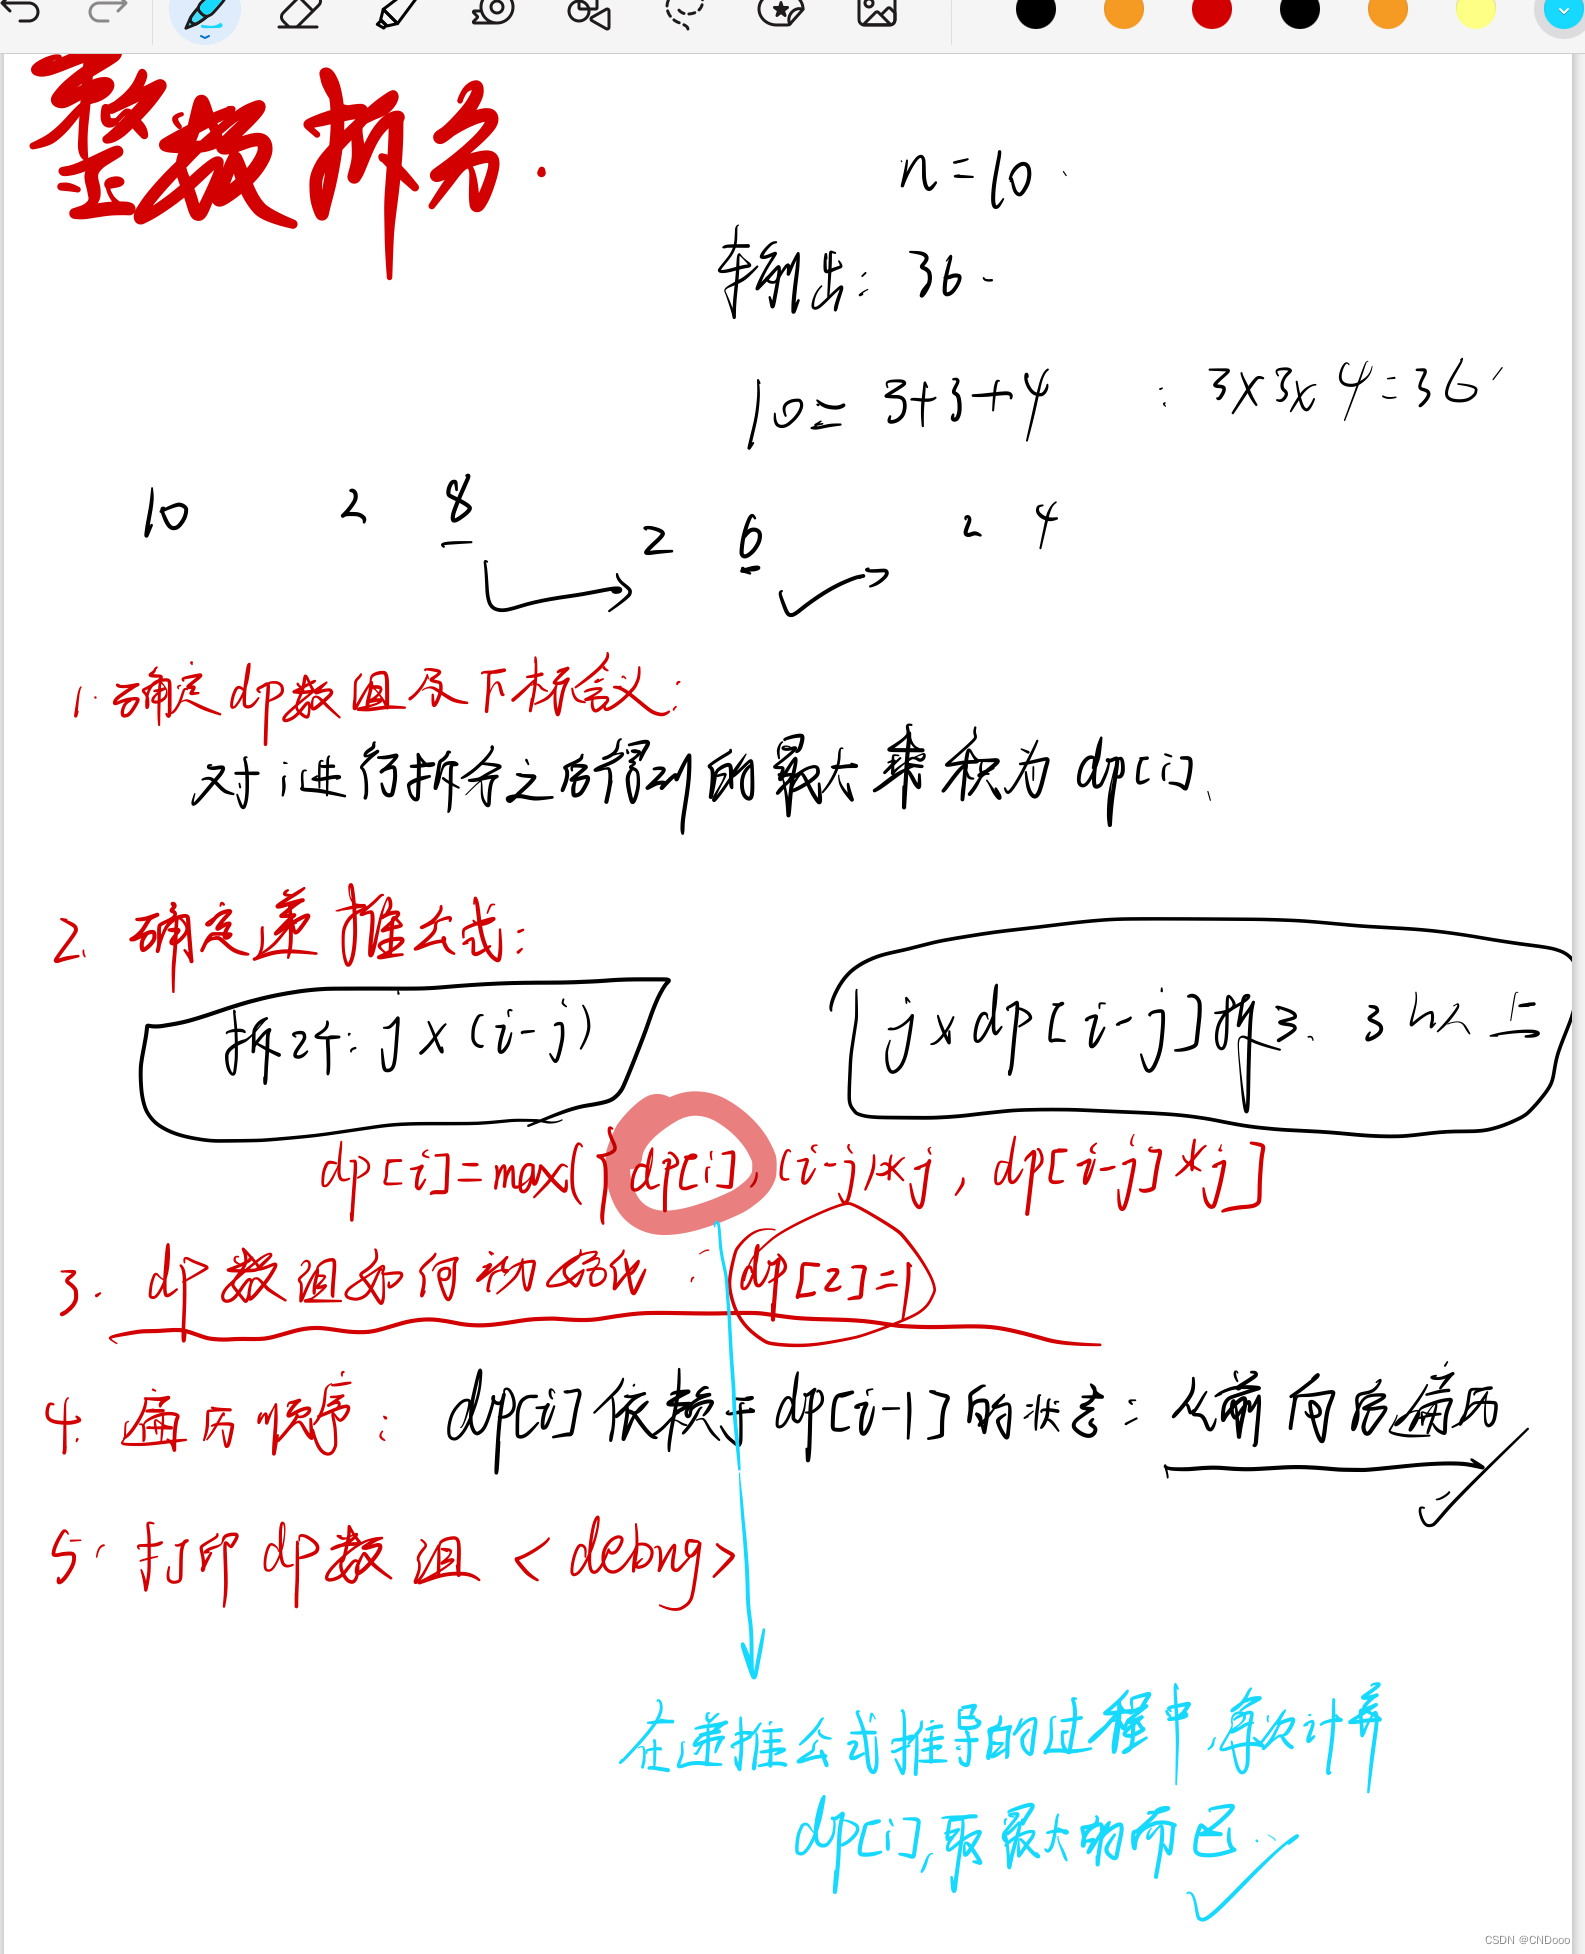 整数拆分.
n=10.
输出: 36.
10=3+3+4 : 3x3x4=36
10 2 8 2 6 2 4
1. 确定dp数组及下标含义:
对i进行拆分之后得到的最大乘积为dp[i].
2. 确定递推公式:
拆2个: j x (i-j)
j x dp[i-j] 拆3. 3个以上
dp[i]=max({dp[i], (i-j)*j, dp[i-j]*j]
3. dp数组如何初始化: dp[2]=1
4. 遍历顺序: dp[i]依赖于dp[i-1]的状态: 从前向后遍历
5. 打印dp数组<debug>
在递推公式推导的过程中,每次计算
dp[i],取最大的而已.
CSDN @CNDooo